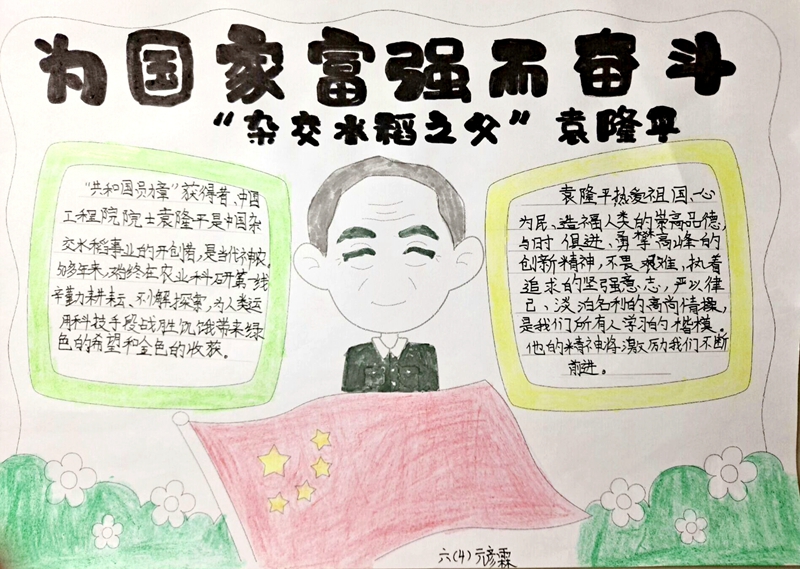 为国家富强而奋斗
“杂交水稻之父”袁隆平
“共和国勋章”获得者、中国
工程院院士袁隆平是中国杂
交水稻事业的开创者,是当代神农。
50多年来,始终在农业科研第一线
辛勤耕耘、不懈探索,为人类运
用科技手段战胜饥饿带来绿
色的希望和金色的收获。
袁隆平热爱祖国、一心
为民、造福人类的崇高品德,
与时俱进、勇攀高峰的
创新精神,不畏艰难、执着
追求的坚强意志,严以律
己、淡泊名利的高尚情操,
是我们所有人学习的楷模。
他的精神将激励我们不断
前进。
六(4)亓彦霖